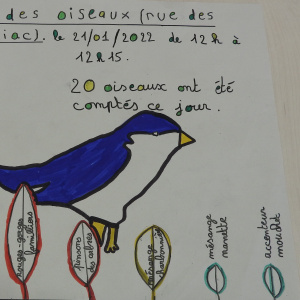 des oiseaux (rue des
iac). le 21/01/2022 de 12h à
12h15.
20 oiseaux ont été
comptés ce jour.
rouges-gorges
familiers
pinsons
des arbres
mésange
charbonnière
mésange
nonnette
accenteur
mouchet